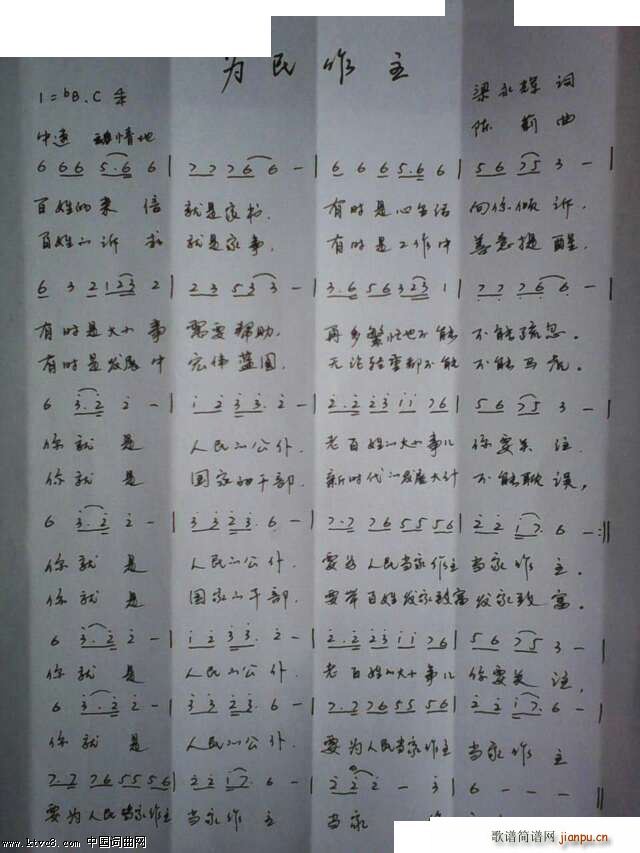 为民作主
1=♭B、C 4/4
梁永辉 词
中速 动情地
陈莉 曲
6 6 6 5·6 6 | 7 7 7 6 6 - | 6 6 6 5·6 6 | 5 6 7 5 3 - |
百姓的来信 就是家书. 有时是心里话 向你倾诉.
百姓的诉求 就是家事. 有时是工作中 善意提醒.
6 3 2 1 2 3 2 | 2 3 5 3 3 - | 3·6 5 6 3 2 3 1 | 7 7 7 6 6 - |
有时是大小事 需要帮助. 再多繁忙也不能 不能疏忽.
有时是发展中 宏伟蓝图. 无论轻重都不能 不能马虎.
6 3·2 2 - | 1 2 3 3·2 - | 2·2 2 3 1 1 7 6 | 5 6 7 5 3 - |
你就是 人民的公仆. 老百姓的大小事儿 你要关注.
你就是 国家的干部. 新时代的发展大计 不能耽误,
6 3·2 2 - | 3 3 2 3·6 - | 7·7 7 6 5 5 5 6 | 2 2 1 7·6 - :||
你就是 人民的公仆. 要为人民当家作主 当家作主.
你就是 国家的干部. 要带百姓发家致富 发家致富.
6 3·2 2 - | 1 2 3 3·2 - | 2·2 2 3 1 1 7 6 | 5 6 7 5 3 - |
你就是 人民的公仆. 老百姓的大小事儿 你要关注,
6 3·2 2 - | 3 3 2 3·6 - | 7·7 7 6 5 5 5 6 | 2 2 1 7·6 - |
你就是 人民的公仆. 要为人民当家作主 当家作主
7·7 7 6 5 5 5 6 | 2 2 1 7·6 - | 2 2 2 - 3 | 6 - - - ||
要为人民当家作主 当家作主 当家作
www.ktvc8.com 中国词曲网
歌谱简谱网
jianpu.cn